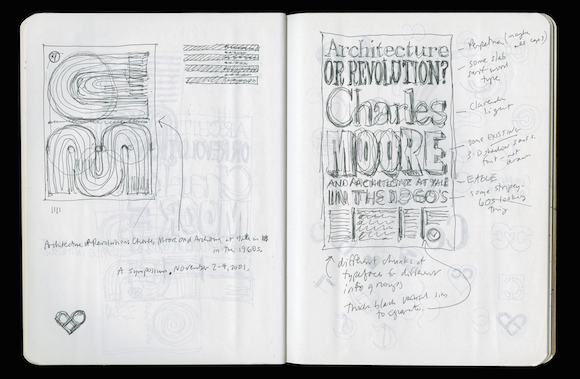 Architecture or Revolution: Charles Moore and Architecture at Yale in
in the 1960s.
A Symposium, November 2-4, 2001.
Architecture
OR REVOLUTION?
Charles
MOORE
AND ARCHITECTURE AT YALE
IN THE 1960'S
Perpetua (maybe
all caps)
some slab
serif wood
type
Clarendon
Light
some EXISTING
3-D shadow
font - not
drawn
EAGLE
some stripey
60s looking
thing
different chunks of
typefaces & different
info groups
thick black vertical lines
to separate.